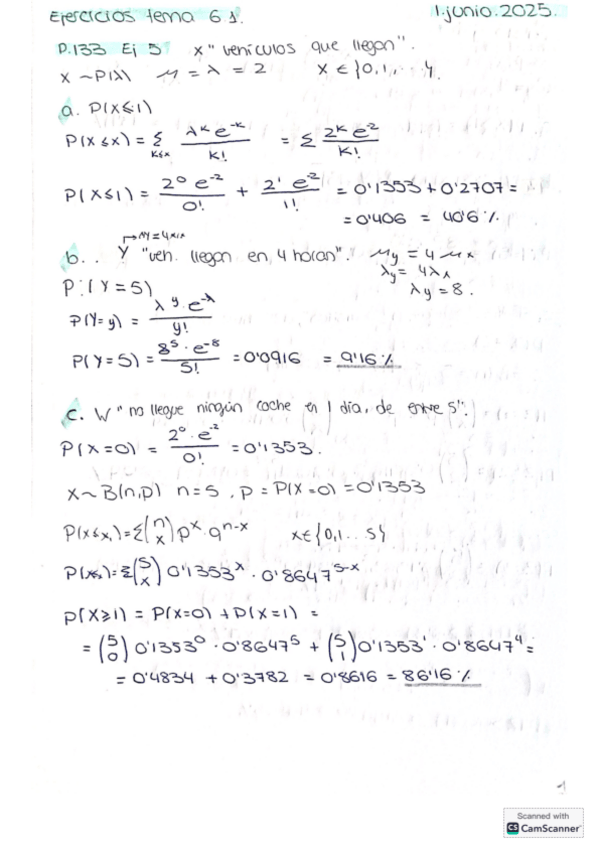 Ejercicios tema 6 1.
1.junio.2025.
P.133 Ej 5 x "vehículos que llegan".
x ~P(λ) μ = λ = 2 x ∈ {0,1,...}.
a. P(X≤1)
P(X ≤x) = Σ k≤x λ^k e^-k / k! = Σ 2^k e^2 / k!
P(X≤1) = 2^0 e^-2 / 0! + 2^1 e^-2 / 1! = 0'1353 + 0'2707 =
= 0'406 = 40'6 %.
↦ μy = 4μx
b. . Y "veh. llegan en 4 horas". μy = 4 μx
λy = 4λx
λy = 8.
P:(Y = 5)
P(Y=y) = λ^y · e^-λ / y!
P(Y=5) = 8^5 · e^-8 / 5! = 0'0916 = 9'16 %
c. W "no llegue ningún coche en 1 día, de entre 5".
P(X=0) = 2^0 · e^-2 / 0! = 0'1353.
x ~ B(n,p) n = 5 , p = P(X=0) = 0'1353
P(x≤x,) = Σ(n x) p^x · q^n-x x∈{0,1...5}
P(x≤,) = Σ(5 x) 0'1353^x · 0'8647^5-x
P(X≥1) = P(x=0) + P(x=1) =
= (5 0) 0'1353^0 · 0'8647^5 + (5 1) 0'1353^1 · 0'8647^4 =
= 0'4834 + 0'3782 = 0'8616 = 86'16 %
1
Scanned with
CS CamScanner